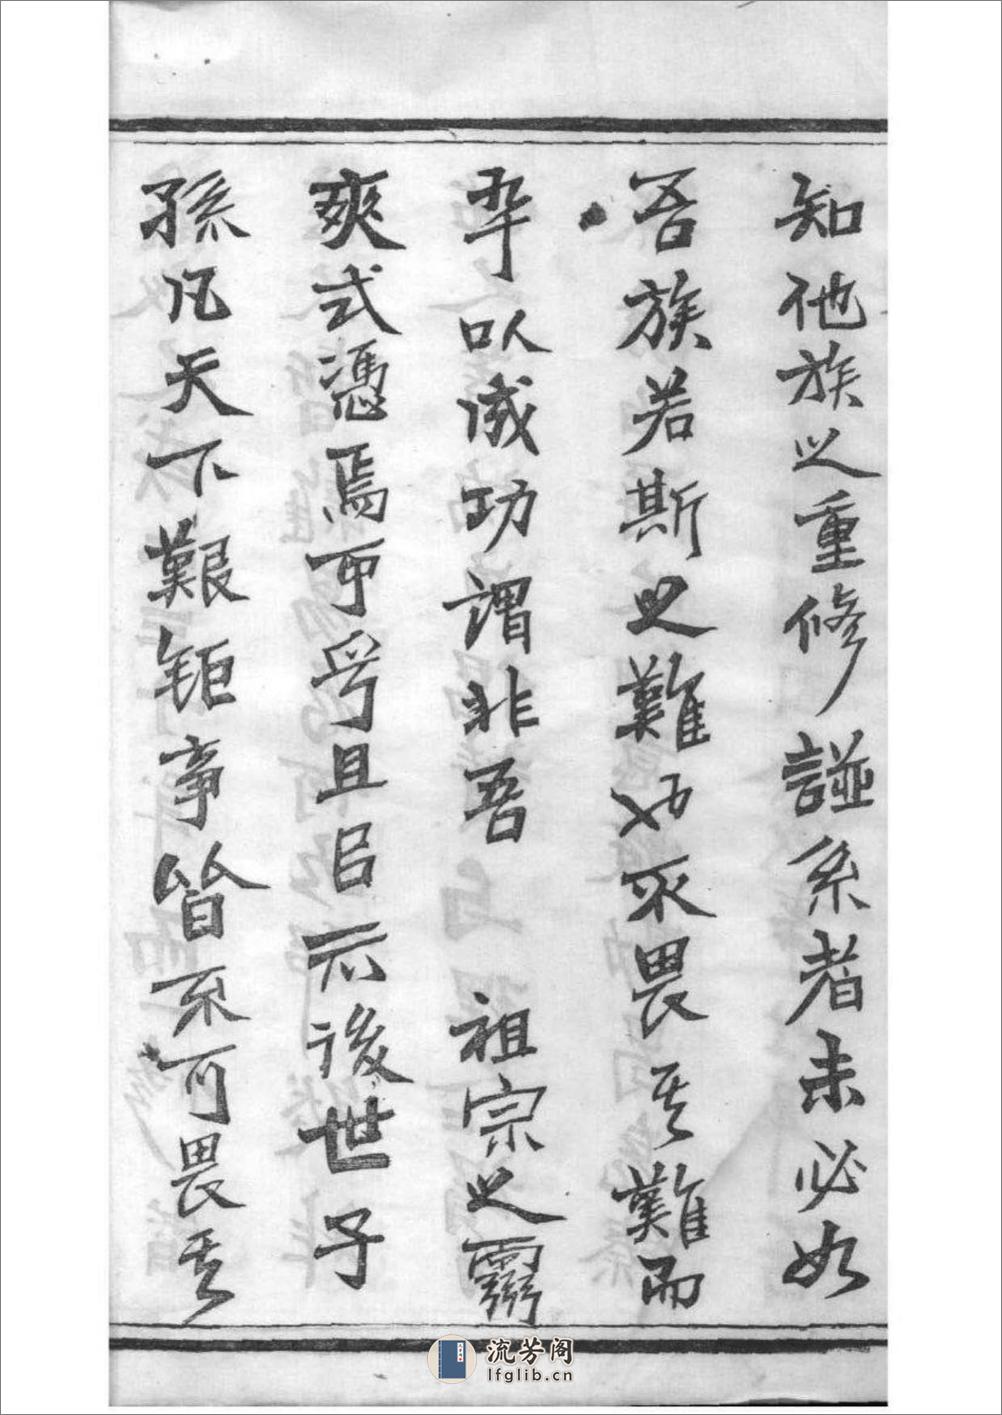 知他族之重修譜系者未必如
吾族若斯之難也不畏其難而
卒以成功謂非吾 祖宗之靈
爽式憑焉可乎且以示後世子
孫凡天下艱鉅事皆不可畏其
流芳阁
lfglib.cn